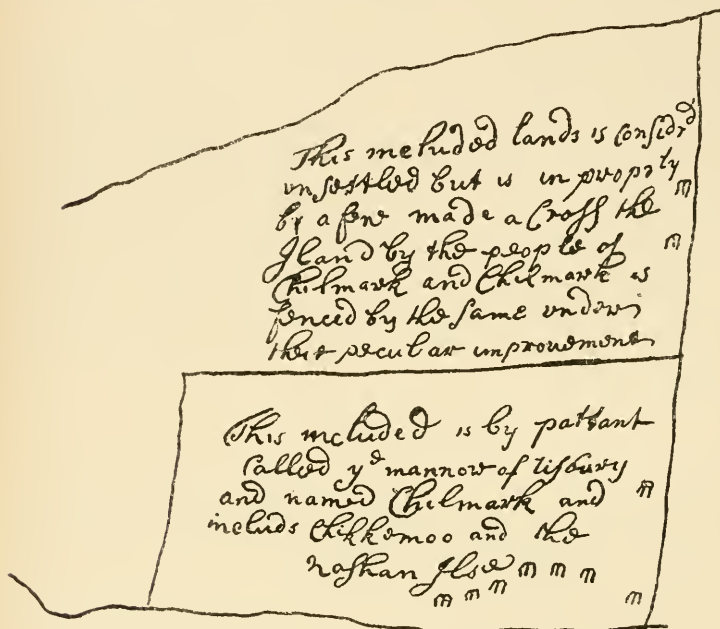 This included lands is considrd
unsettled but is in proprty
by a fene made a Cross the
Iland by the people of
Chilmark and Chilmark is
fenced by the same under
their peculiar improvement
This included is by pattant
Called ye mannor of Tisbury
and named Chilmark and
includs Chikkemoo and the
Nashan Ilse